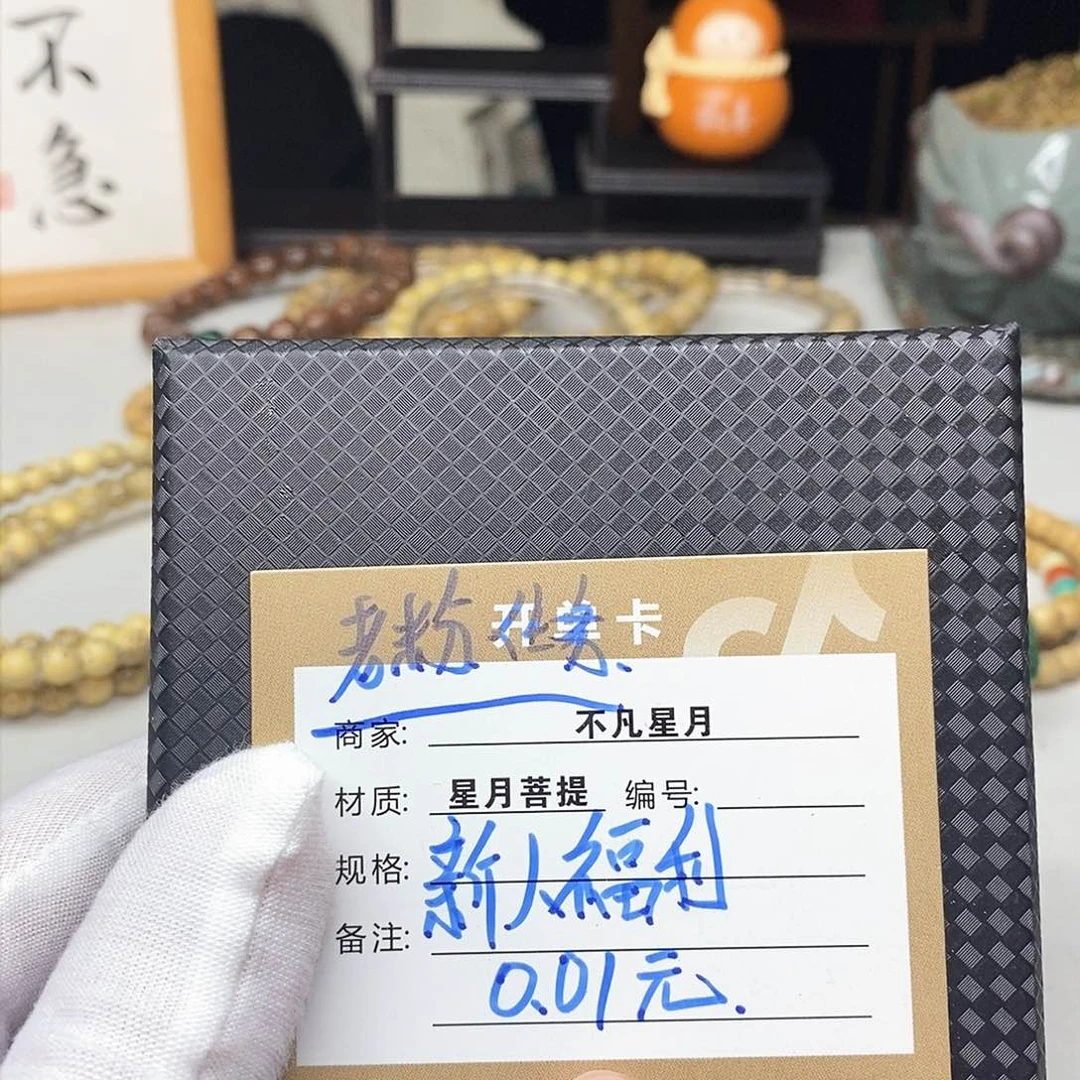 不急
开单卡
老粉
商家: 不凡星月
材质: 星月菩提 编号:
规格:
新人福利
备注:
0.01元.